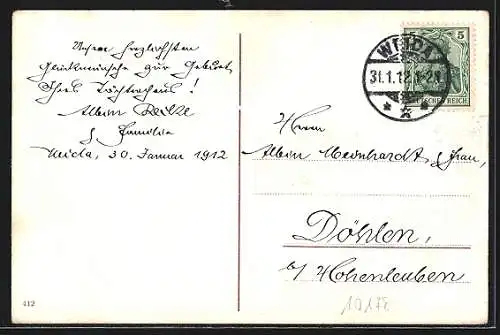 Unsere herzlichsten
Glückwünsche zur Geburt
Ihres Töchterchens!
Albin
Familie
Weida, 30. Januar 1912
WEIDA
31.1.12.1-2N
DEUTSCHES REICH
5
Herrn
Albin Meinhardt & Frau,
Döhlen,
b/ Hohenleuben
1017E
412